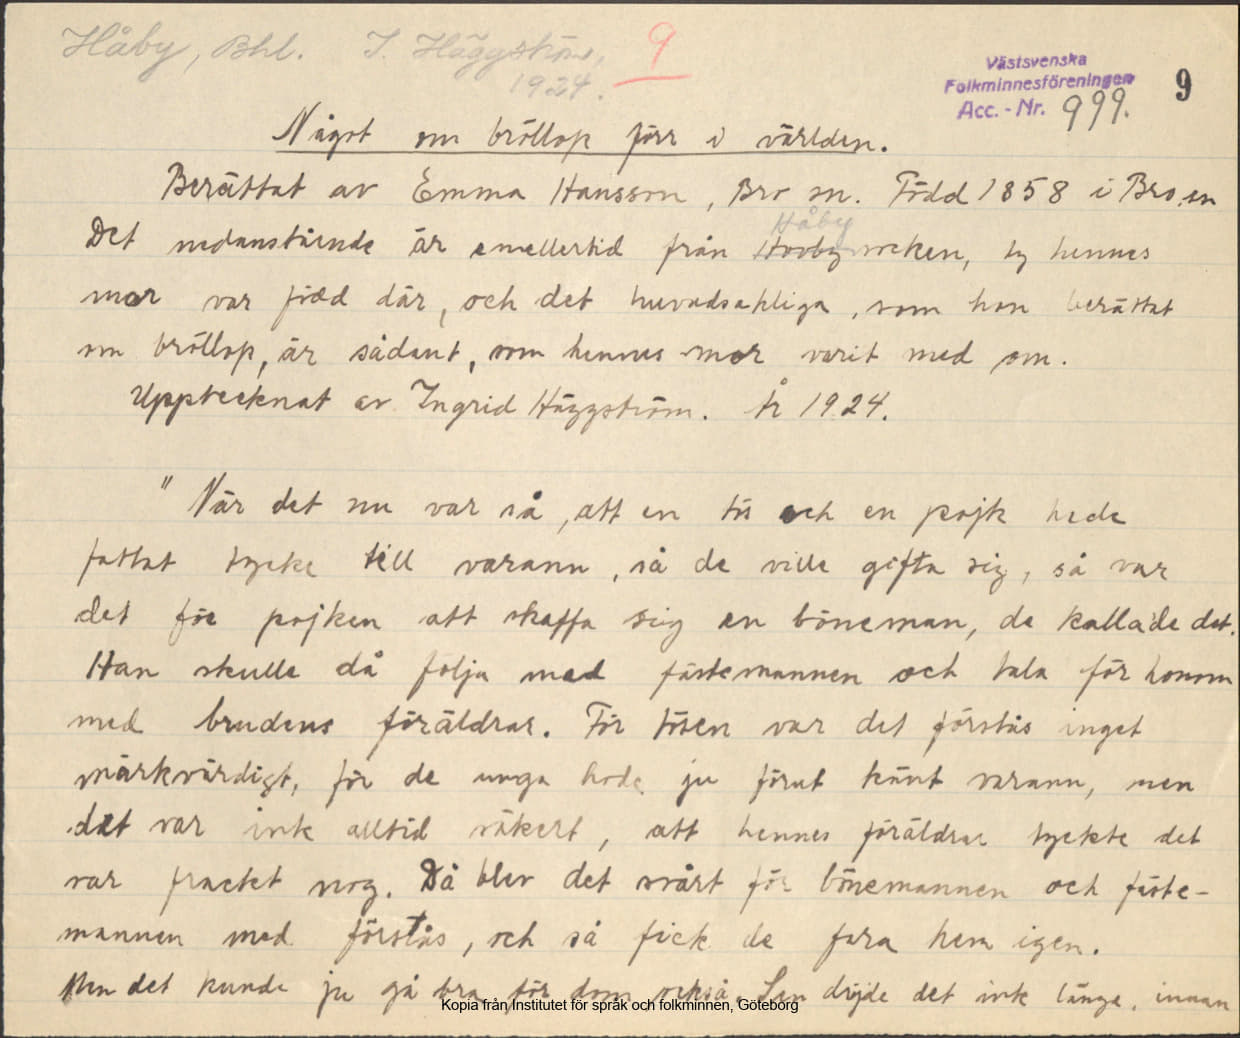 Håby, Bhl. I. Häggström, 9
1924.
Västsvenska
Folkminnesföreningen
Acc. - Nr. 999.
9
Något om bröllop förr i världen.
Berättat av Emma Hansson, Bro sn. Född 1858 i Bro sn
Håby
Det nedanstående är emellertid från Hovby socken, ty hennes
mor var född där, och det huvudsakliga, som hon berättat
om bröllop, är sådant, som hennes mor varit med om.
Upptecknat av Ingrid Häggström. År 1924.
" När det nu var så, att en tös och en pojk hade
fattat tycke till varann, så de ville gifta sig, så var
det för pojken att skaffa sig en böneman, de kallade det.
Han skulle då följa med fästemannen och tala för honom
med brudens föräldrar. För tösen var det förstås inget
märkvärdigt, för de unga hade ju förut känt varann, men
det var inte alltid säkert, att hennes föräldrar tyckte det
var frackt nog. Då blev det svårt för bönemannen och fäste-
mannen med förstås, och så fick de fara hem igen.
Men det kunde ju gå bra för dom också. Sen dröjde det inte länge, innan
Kopia från Institutet för språk och folkminnen, Göteborg